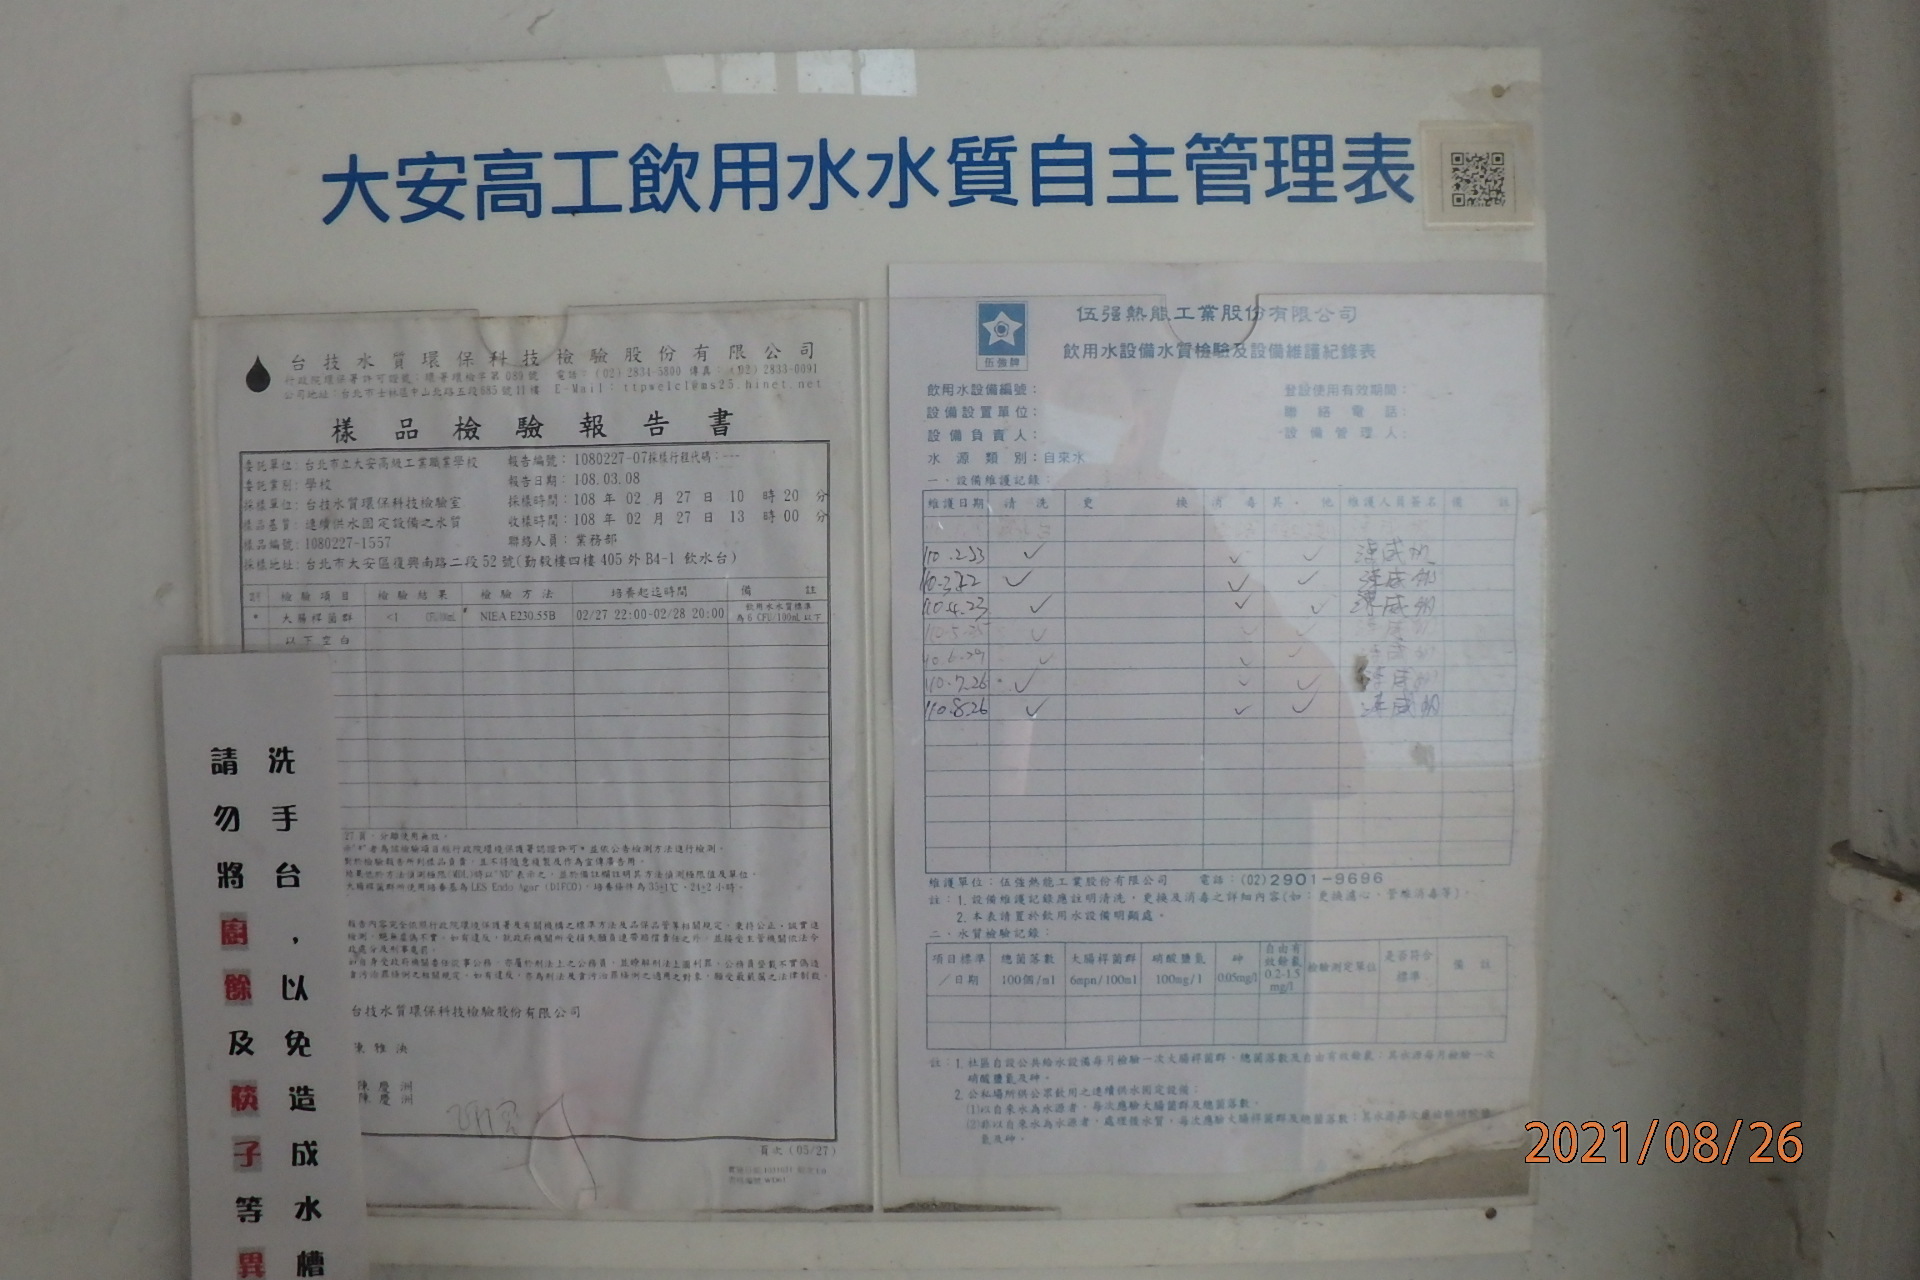 大安高工飲用水水質自主管理表
台技水質環保科技檢驗股份有限公司
行政院環保署許可證號：環署環檢字第089號 電話：(02)2834-5800 傳真：(02)2833-0091
公司地址：台北市士林區中山北路五段685號11樓 E-Mail：ttpwelcl@ms25.hinet.net
樣品檢驗報告書
委託單位：台北市立大安高級工業職業學校 報告編號：1080227-07採樣行程代碼：---
委託業別：學校 報告日期：108.03.08
採樣單位：台技水質環保科技檢驗室 採樣時間：108 年 02 月 27 日 10 時 20 分
樣品基質：連續供水固定設備之水質 收樣時間：108 年 02 月 27 日 13 時 00 分
樣品編號：1080227-1557 聯絡人員：業務部
採樣地址：台北市大安區復興南路二段52號(勤毅樓四樓405外B4-1 飲水台)
檢驗項目 檢驗結果 檢驗方法 培養起迄時間 備註
* 大腸桿菌群 <1 NIEA E230.55B 02/27 22:00~02/28 20:00 飲用水水質標準
為6 CFU/100mL以下
以下空白
27頁，分離使用無效。
者為該檢驗項目經行政院環境保護署認證許可，並依公告檢測方法進行檢測。
對於檢驗報告所列樣品負責，並不得隨意複製及作為宣傳廣告用。
結果低於方法偵測極限(MDL)時以"ND"表示之，並於備註欄註明其方法偵測極限值及單位。
大腸桿菌群所使用培養基為LES Endo Agar (DIFCO)，培養條件為35±1℃、24±2小時。
台技水質環保科技檢驗股份有限公司
陳慶洲
陳慶洲
頁次 (05/27)
洗手台，以免造成水槽
請勿將廚餘及筷子等異
伍強牌
伍强熱能工業股份有限公司
飲用水設備水質檢驗及設備維護紀錄表
飲用水設備編號： 登設使用有效期間：
設備設置單位： 聯絡電話：
設備負責人： 設備管理人：
水源類別：自來水
一．設備維護記錄：
維護日期 清洗 更換 消毒 其．他 維護人員簽名 備註
110.3.22 ✓ ✓ ✓
110.4.23 ✓ ✓ ✓
✓ ✓ ✓
110.6.29 ✓ ✓ ✓
110.7.26 ✓ ✓ ✓
110.8.26 ✓ ✓ ✓
維護單位：伍強熱能工業股份有限公司 電話：(02)2901-9696
註：1.設備維護記錄應註明清洗，更換及消毒之詳細內容(如：更換濾心、管線消毒等)．
2.本表請置於飲用水設備明顯處。
二．水質檢驗記錄：
項目標準／日期 總菌落數 100個/ml 大腸桿菌群 6mpn/100ml 硝酸鹽氮 100mg/l 砷 0.05mg/l 自由有效餘氯 0.2-1.5 mg/l 檢驗測定單位 是否符合標準 備註
註：1.社區自設公共給水設備每月檢驗一次大腸桿菌群、總菌落數及自由有效餘氯；其水源每月檢驗一次
硝酸鹽氮及砷。
2.公私場所供公眾飲用之連續供水固定設備：
(1)以自來水為水源者，每次應驗大腸菌群及總菌落數．
氮及砷．
2021/08/26